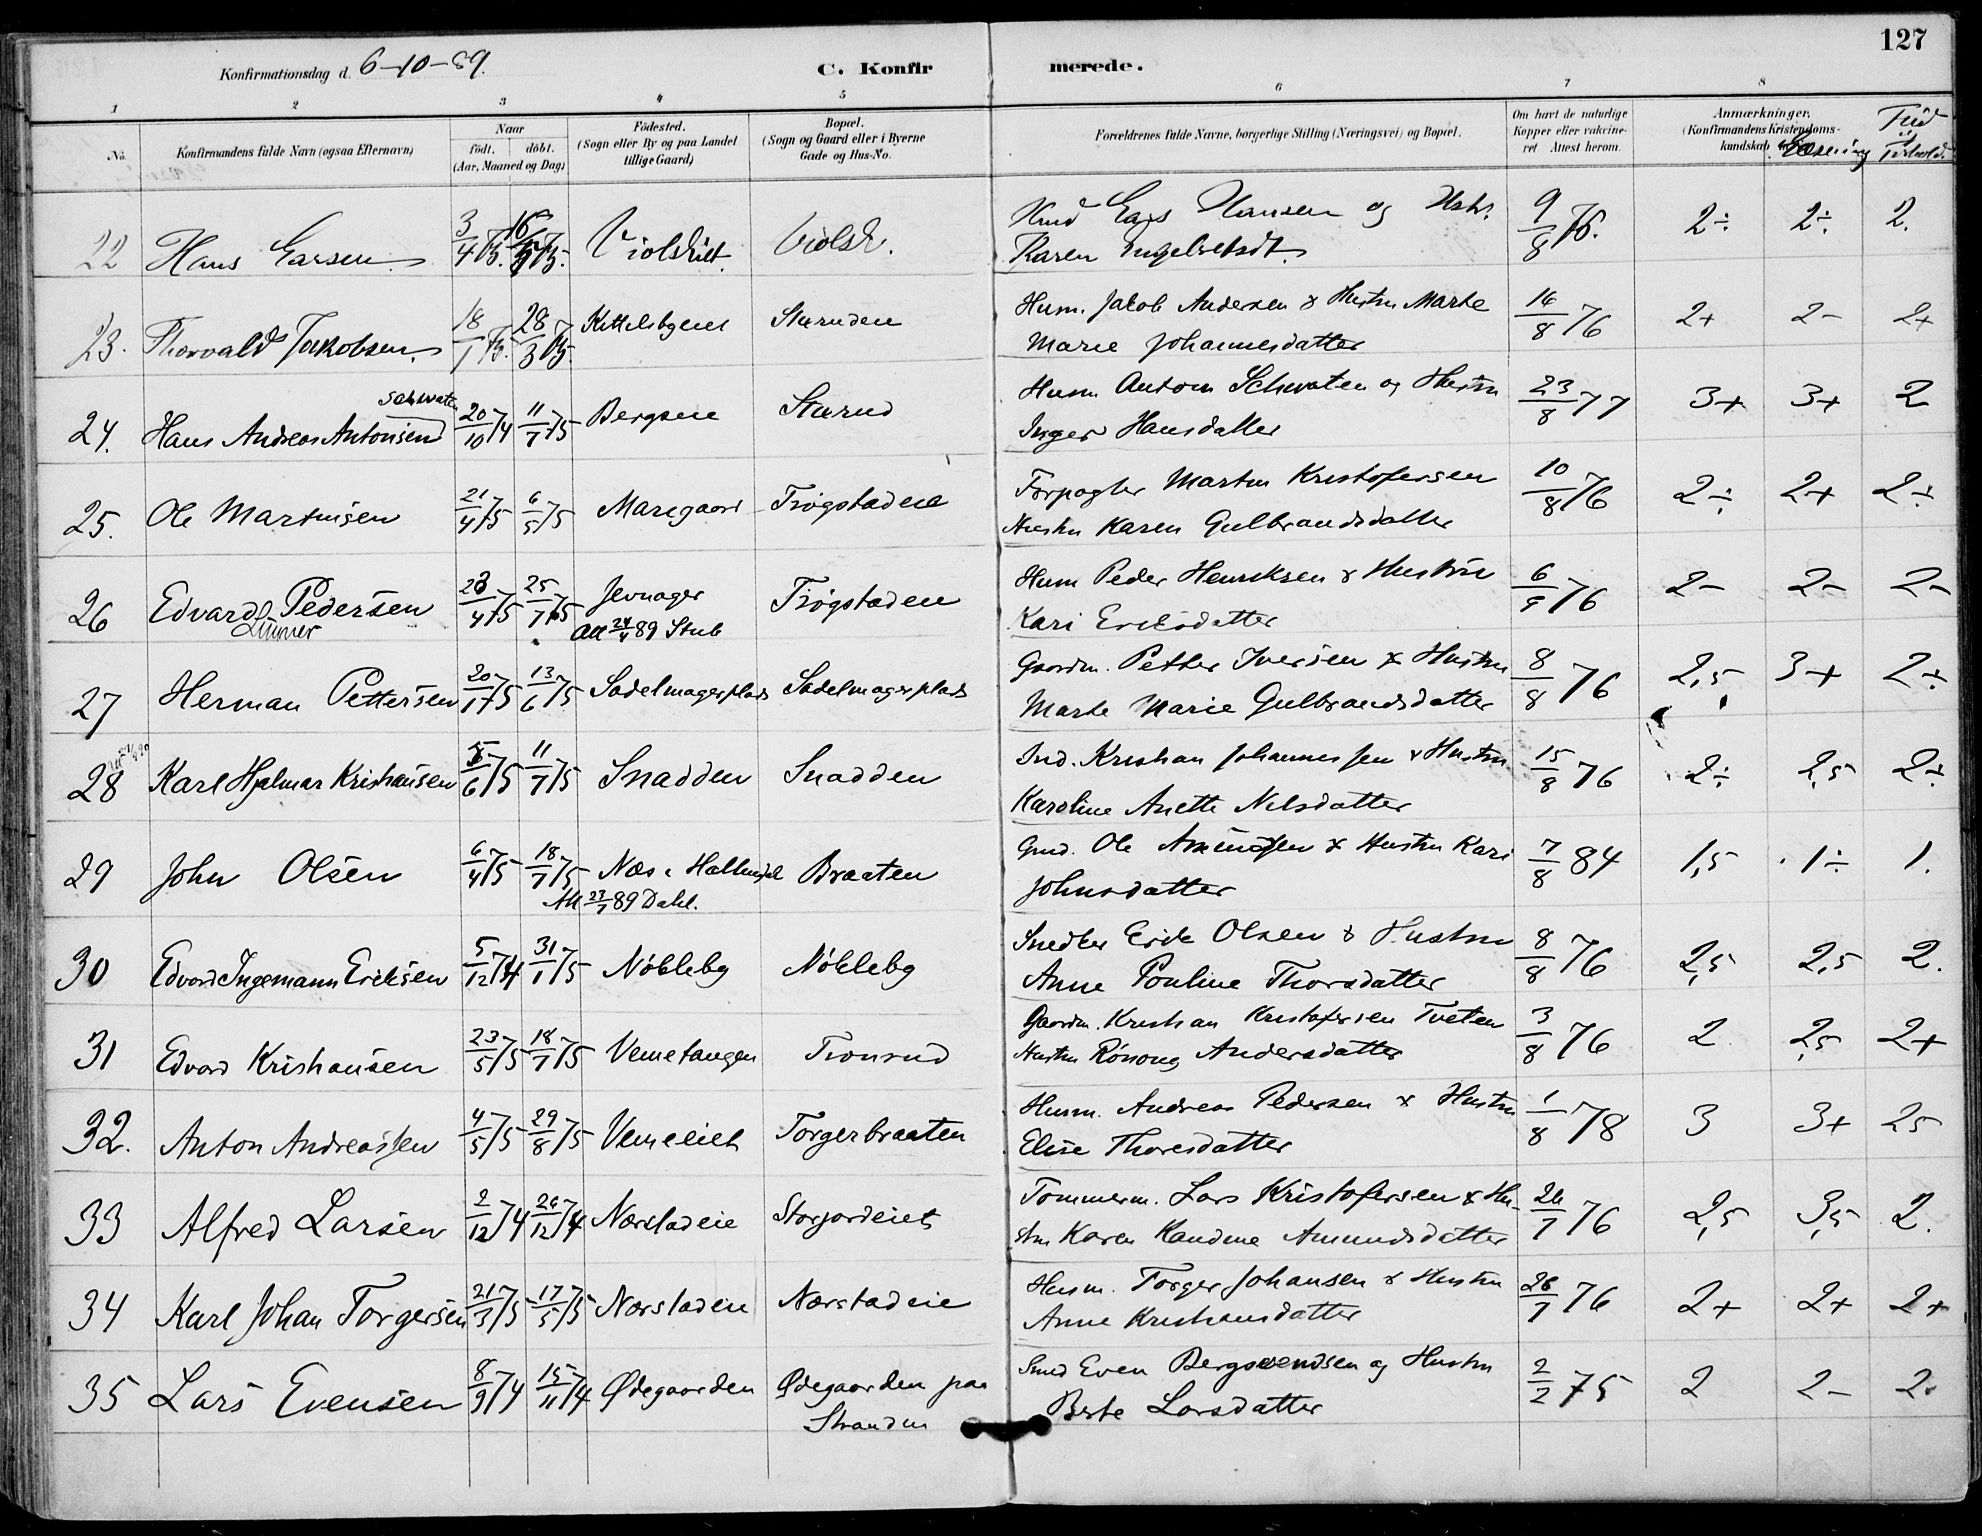 127
Konfirmationsdag d. 6-10-89.
C. Konfir
merede.
1 2 3 4 5 6 7 8
No.
Konfirmandens fulde Navn (ogsaa Efternavn)
Naar
født. døbt.
(Aar, Maaned og Dag)
Fødested.
(Sogn eller By og paa Landet
tillige Gaard)
Bopæl.
(Sogn og Gaard eller i Byerne
Gade og Hus-No.
Forældrenes fulde Navne, borgerlige Stilling (Næringsvei) og Bopæl.
Om havt de naturlige
Kopper eller vakcine-
ret Attest herom.
Anmærkninger.
(Konfirmandens Kristendoms-
kundskab
Flid
22 Hans Larsen 3/4 75. Violskift. Violsk.
Lars Hansen og Hstr. 9/8 76. 2÷ 2÷ 2.
Karen Engelbretsdt.
23. Thorvald Jakobsen 18/1 75. 28/3 75. Sturuden
Husm. Jakob Andersen & Hustru Marte 16/8 76 2+ 2- 2+
Marie Johannesdatter
Schwaten
24. Hans Andreas Antonsen 20/10 74 11/7 75 Bergseie Sturud
Husm Antom Schwaten og Hustru 23/8 77 3+ 3+ 2
Inger Hansdatter
25. Ole Martinsen 21/4 75 6/5 75 Maregaard Trøgstadeie
Forpagter Martin Kristofersen 10/8 76 2÷ 2+ 2÷
Hustru Karen Gulbrandsdatter
26 Edvard Pedersen 23/4 75 25/7 75 Jevnager Trøgstadeie
Linner
Att 24/4 89 Stub
Husm Peder Henriksen & Hustru 6/9 76 2- 2- 2-
Kari Eriksdatter
27 Herman Pettersen 20/1 75 13/6 75 Sadelmagerplads Sadelmagerplads
Gaardm. Petter Iversen & Hustru 8/8 76 2,5 3+ 2÷
Marte Marie Gulbrandsdatter
28 Karl Hjalmar Kristiansen 8/6 75 11/7 75 Snadden Snadden
Ind. Kristian Johannessen & Hustru 15/8 76 2÷ 2,5 2÷
Karoline Anette Nilsdatter
29 John Olsen 6/4 75 18/7 75 Næs i Hallingdal Braaten
Att 27/7 89 Dahl.
Ole Amundsen & Hustru Kari 7/8 84 1,5 1÷ 1.
Johnsdatter
30 Edvard Ingemann Eriksen 5/12 74 31/1 75 Nøkleby Nøkleby
Snedker Erik Olsen & Hustru 8/8 76 2,5 2,5 2.
Anne Pouline Thorsdatter
31 Edvard Kristiansen 23/5 75 18/7 75 Vemetangen Tronrud
Gaardm. Kristian Kristofersen Tveten 3/8 76 2 2,5 2+
Hustru Rønnoug Andersdatter
32. Anton Andreassen 4/5 75 29/8 75 Vemeeiet Torgerbraaten
Husm. Andreas Pedersen & Hustru 1/8 78 3 3+ 25
Elise Thoresdatter
33 Alfred Larsen 2/12 74 26/12 74 Nærstadeie Storjordeiet
Tømmerm. Lars Kristofersen & Hu- 26/7 76 2,5 3,5 2.
stru Karen Kandine Amundsdatter
34 Karl Johan Torgersen 21/3 75 17/5 75 Nærstadeie Nærstadeie
Husm. Torger Johansen & Hustru 28/7 76 2+ 2+ 2+
Anne Kristiansdatter
35 Lars Evensen 8/9 74 15/11 74 Ødegaarden Ødegaarden paa
Stranden
Smed Even Bergsvendsen og Hustru 2/2 75 2 2- 2.
Berte Larsdatter